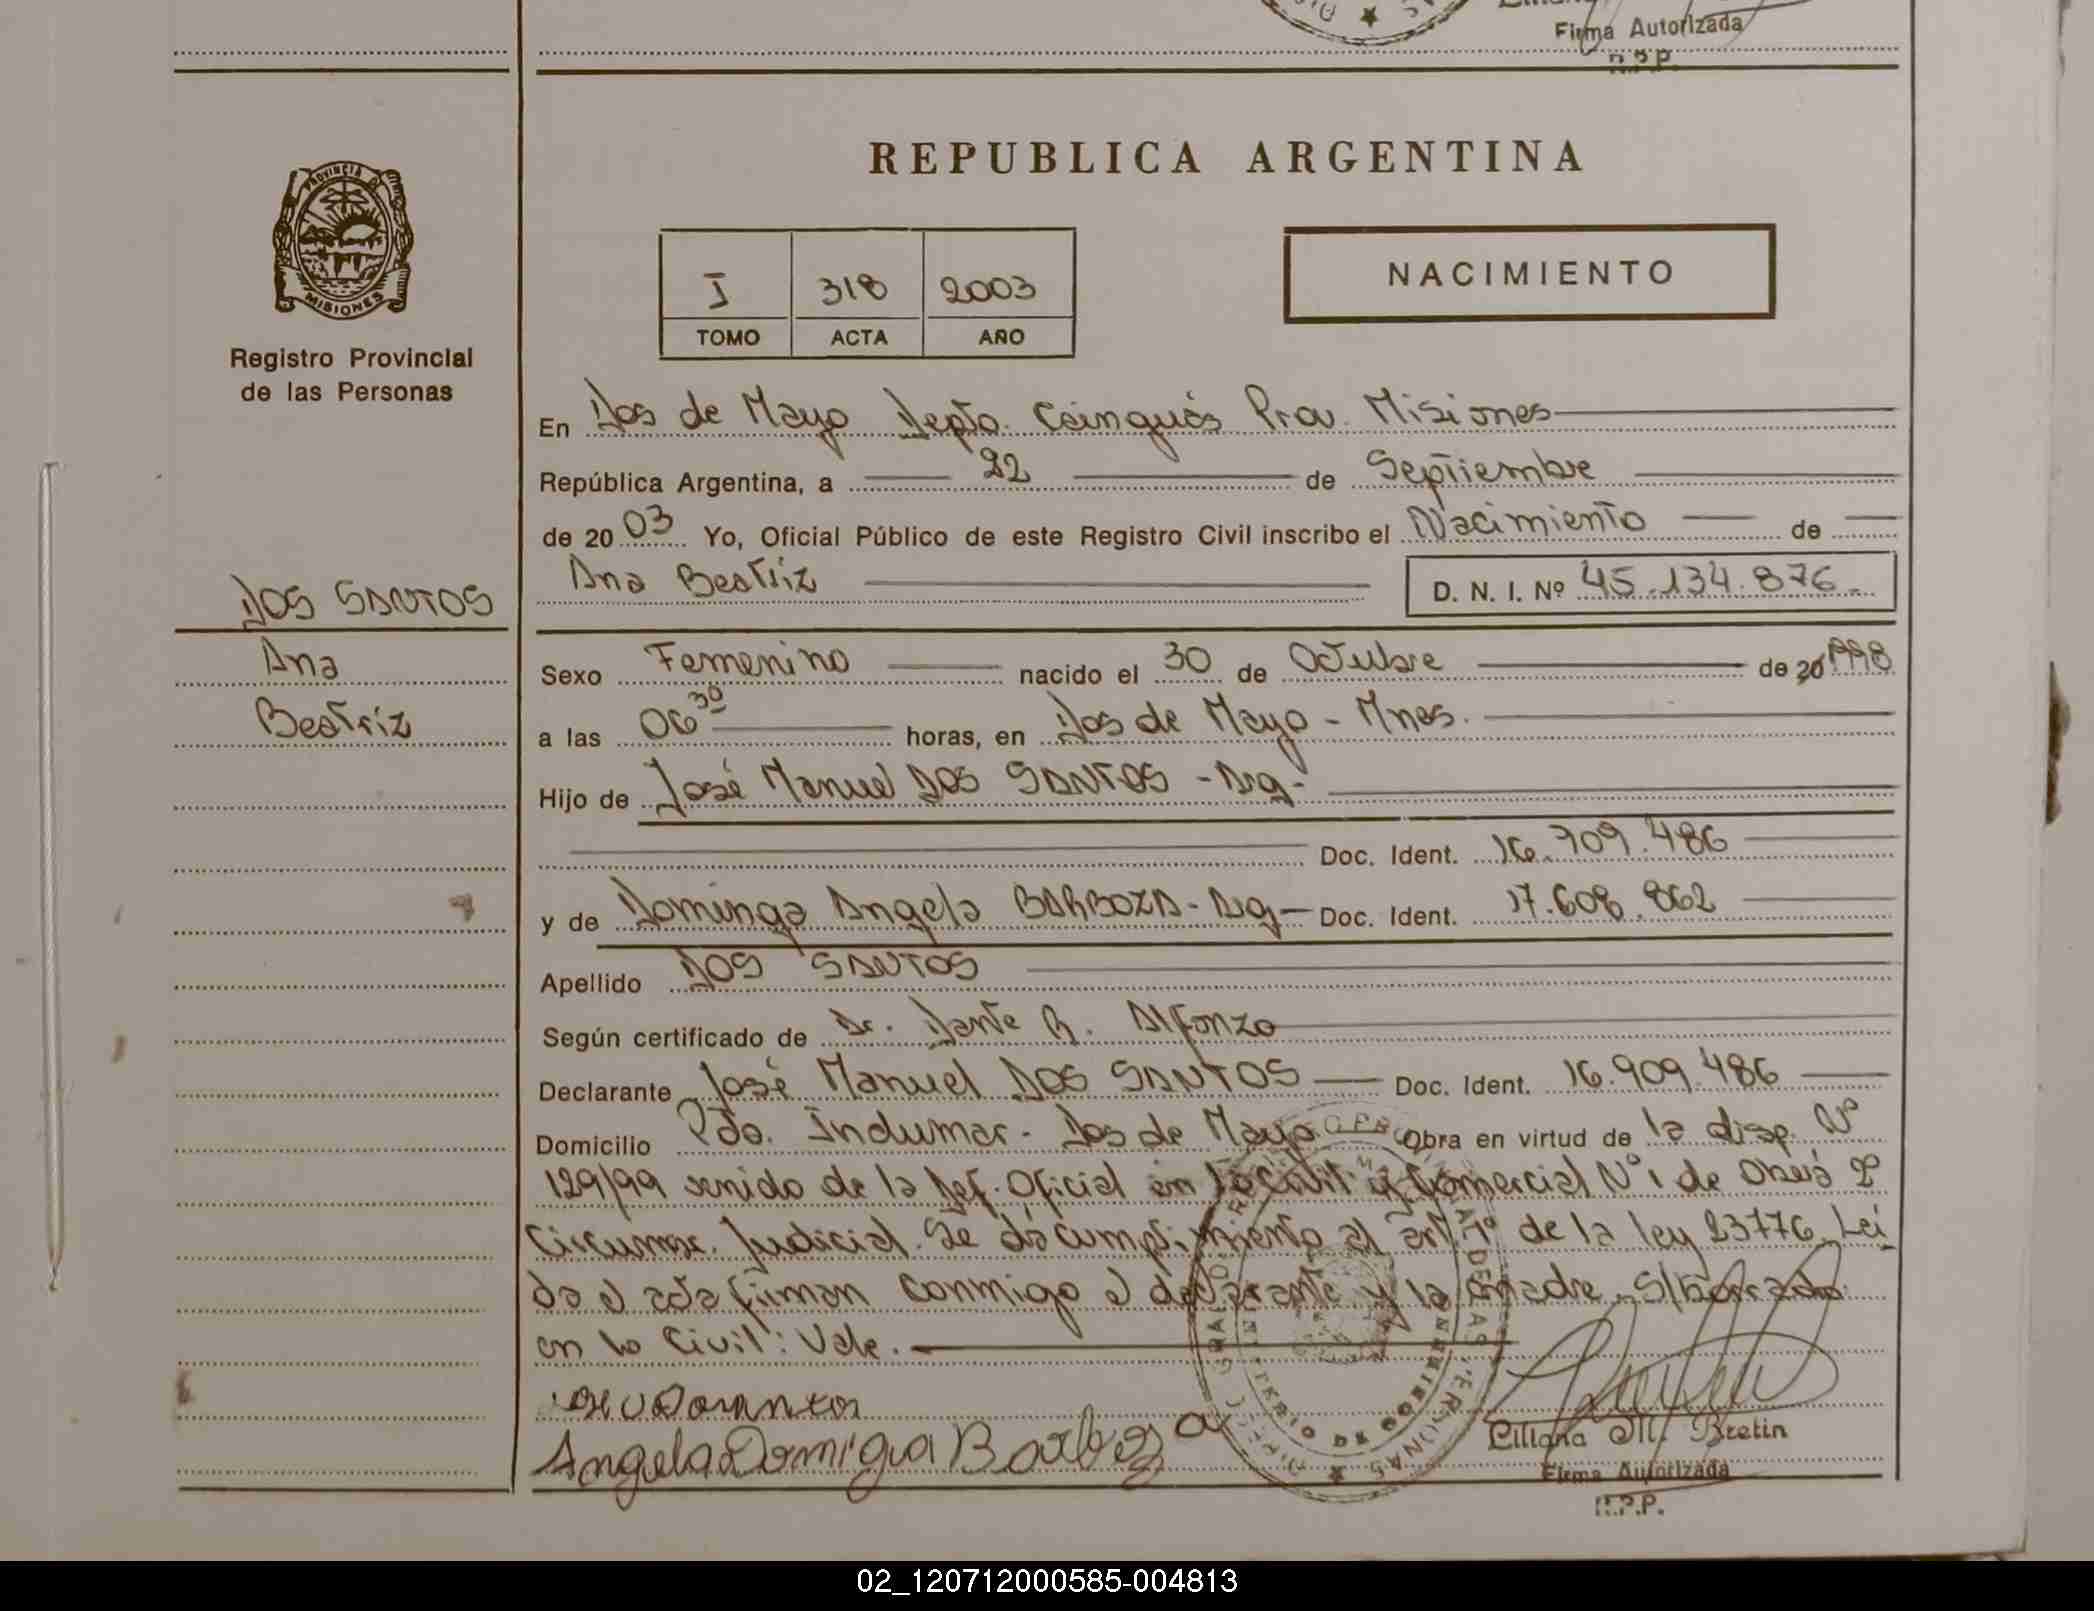 Firma Autorizada
R.P.P.
REPUBLICA ARGENTINA
PROVINCIA DE
MISIONES
Registro Provincial
de las Personas
I 318 2003
TOMO ACTA AÑO
NACIMIENTO
En Dos de Mayo Depto. Cainguás Prov. Misiones
República Argentina, a 22 de Septiembre
de 2003 Yo, Oficial Público de este Registro Civil inscribo el Nacimiento de
Ana Beatriz D. N. I. Nº 45.134.876.
DOS SANTOS
Ana
Beatriz
Sexo Femenino nacido el 30 de Octubre de 20 1998
a las 06 30 horas, en Dos de Mayo - Mnes.
Hijo de José Manuel DOS SANTOS - Arg -
Doc. Ident. 16.909.486
y de Dominga Angela BARBOZA - Arg - Doc. Ident. 17.608.862
Apellido DOS SANTOS
Según certificado de Dr. Dante R. Alfonzo
Declarante José Manuel DOS SANTOS Doc. Ident. 16.909.486
Domicilio Pdo. Indumar - Dos de Mayo Obra en virtud de la disp. Nº
129/99 venido de la Def. Oficial en lo Civil y Comercial Nº 1 de Oberá 2º
Circunsc. Judicial. Se dá cumplimiento al art 1º de la ley 23776. Leí
da el acta firman conmigo el declarante y la madre. S/borrado:
en lo Civil: Vale.
Angela Domigua Barboza
Liliana M. Bretin
Firma Autorizada
R.P.P.
02_120712000585-004813